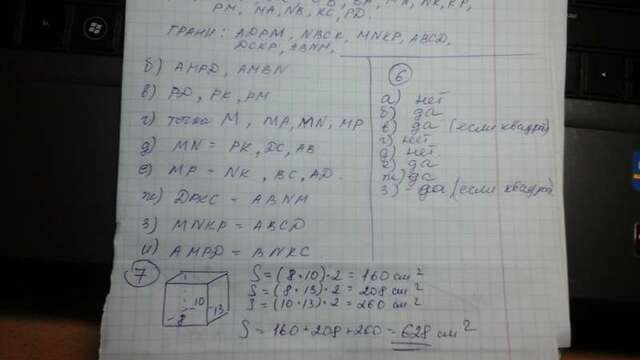 РМ, МА, NB, КС, PD.
ГРАНИ: ADPM, NBCK, MNKP, ABCD,
DCKP, ABNM,
б) AMPD, AMBN
в) PD, PK, PM
г) точка M, MA, MN, MP
д) MN = PK, DC, AB
е) MP = NK, BC, AD.
ж) DPKC = ABNM
з) MNKP = ABCD
и) AMPD = BNKC
6
а) нет
б) да
в) да (если квадрат)
г) нет
д) нет
е) да
ж) да
з) - да (если квадрат)
7
10
8
13
S = (8·10)·2 = 160 см²
S = (8·13)·2 = 208 см²
S = (10·13)·2 = 260 см²
S = 160 + 208 + 260 = 628 см²